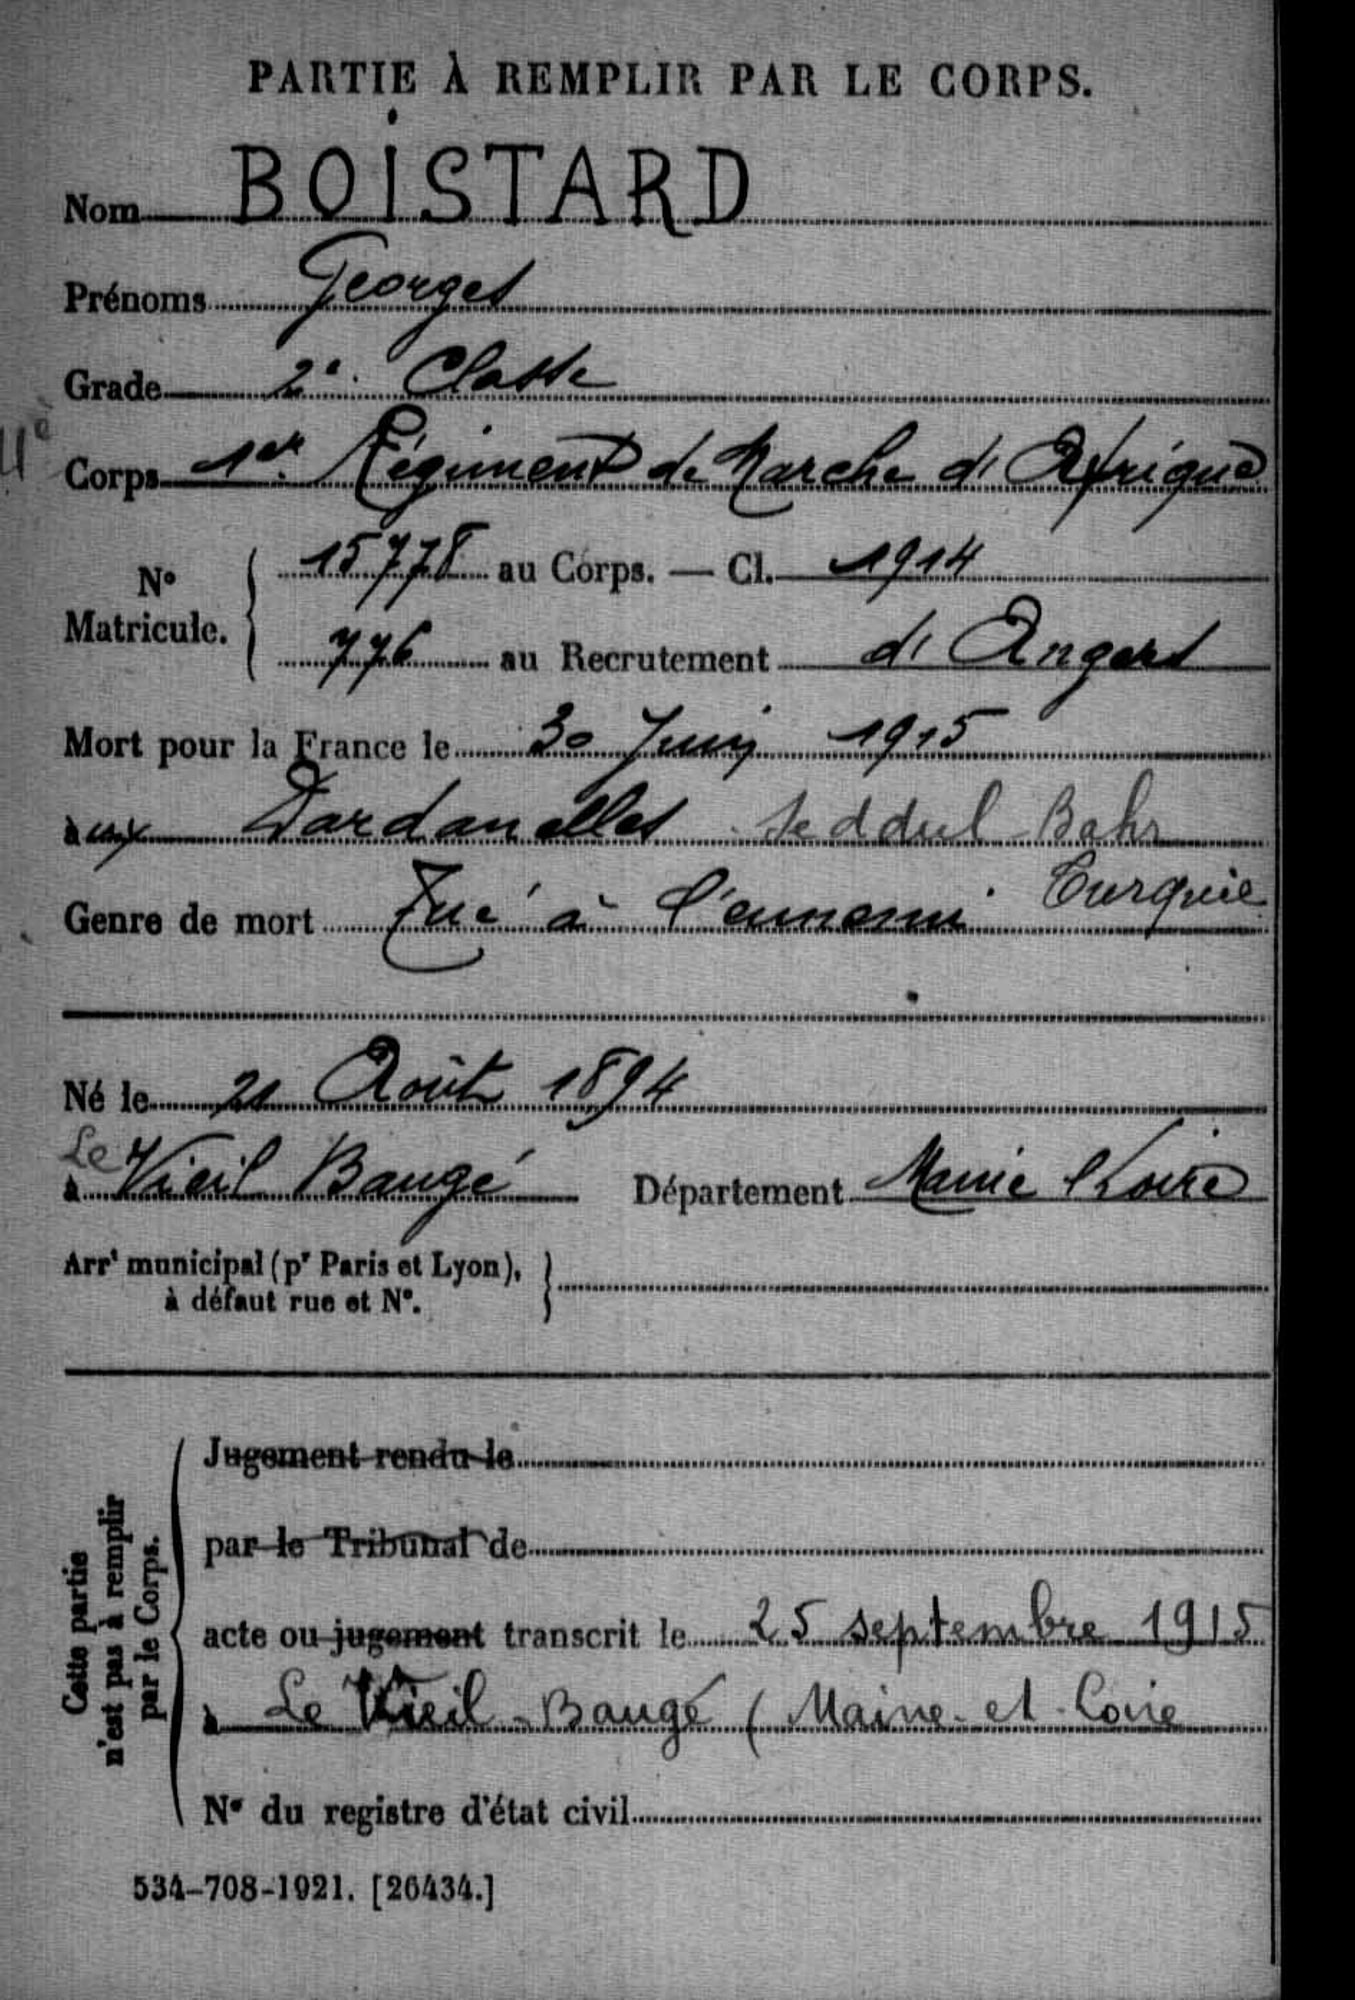 PARTIE À REMPLIR PAR LE CORPS.
Nom BOISTARD
Prénoms Georges
Grade 2e Classe
Corps 1er Régiment de Marche d'Afrique
N° Matricule. 15778 au Corps. — Cl. 1914
776 au Recrutement d'Angers
Mort pour la France le 30 Juin 1915
aux Dardanelles Seddul-Bahr
Turquie
Genre de mort Tué à l'ennemi
Né le 21 Août 1894
à Le Vieil Baugé Département Maine & Loire
Arrt municipal (pr Paris et Lyon),
à défaut rue et N°.
Cette partie
n'est pas à remplir
par le Corps.
Jugement rendu le
par le Tribunal de
acte ou jugement transcrit le 25 septembre 1915
à Le Vieil-Baugé (Maine-et-Loire
N° du registre d'état civil
534-708-1921. [26434.]